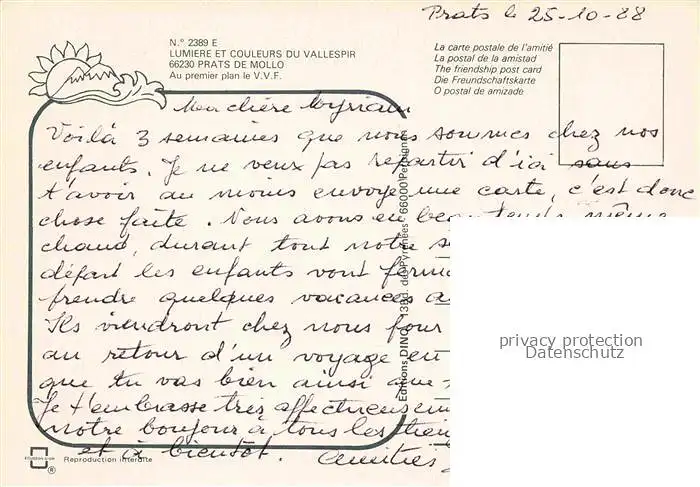 Prats le 25-10-88
N.° 2389 E
LUMIERE ET COULEURS DU VALLESPIR
66230 PRATS DE MOLLO
Au premier plan le V.V.F.
La carte postale de l'amitié
La postal de la amistad
The friendship post card
Die Freundschaftskarte
O postal de amizade
Ma chère Myriam
Voilà 3 semaines que nous sommes chez nos
enfants. Je ne veux pas repartir d'ici sans
t'avoir au moins envoyé une carte, c'est donc
chose faite. Nous avons eu beau temps même
chaud, durant tout notre
départ les enfants vont
prendre quelques vacances
Ils viendront chez nous pour
au retour d'un voyage en
que tu vas bien ainsi que
Je t'embrasse très affectueusem
notre bonjour à tous les tiens
et à bientôt. Amitiés
Editions DINO, 13 Bd. des Pyrénées 66000 Perpignan
privacy protection
Datenschutz
Reproduction interdite
®